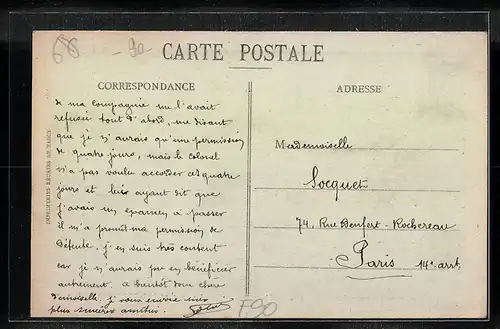 68 -90
CARTE POSTALE
CORRESPONDANCE
ADRESSE
de ma compagnie me l'avait
refusée tout d'abord, me disant
que je n'aurais qu'une permission
de quatre jours, mais le colonel
n'a pas voulu accorder ces quatre
jours et lui ayant dit que
j'avais un examen à passer
il m'a promit ma permission de
détente, j'en suis très content
car je n'aurais pu en bénéficier
autrement. a bientôt donc chère
Demoiselle, je vous envoie mes
plus sincères amitiés.
F90
Mademoiselle
Socquet
74, Rue Denfert-Rochereau
Paris 14e arrt.